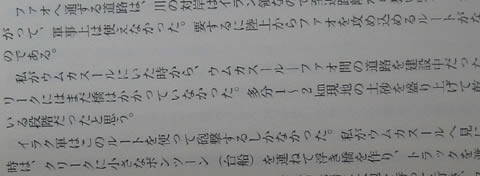 ファオへ通ずる道路は、川の対岸はイラン領なので
がって、軍事上は使えなかった。要するに陸上からファオを攻め込めるルートがな
のである。
私がウムカスールにいた時から、ウムカスール—ファオ間の道路を建設中だった
リークにはまだ橋はかかっていなかった。多分1~2km現地の土砂を盛り上げて
いる段階だったと思う。
イラク軍はこのルートを使って砲撃するしかなかった。私がウムカスールへ見に
時は、クリークに小さなポンツーン(台船)を連ねて浮き橋を作り、トラックを